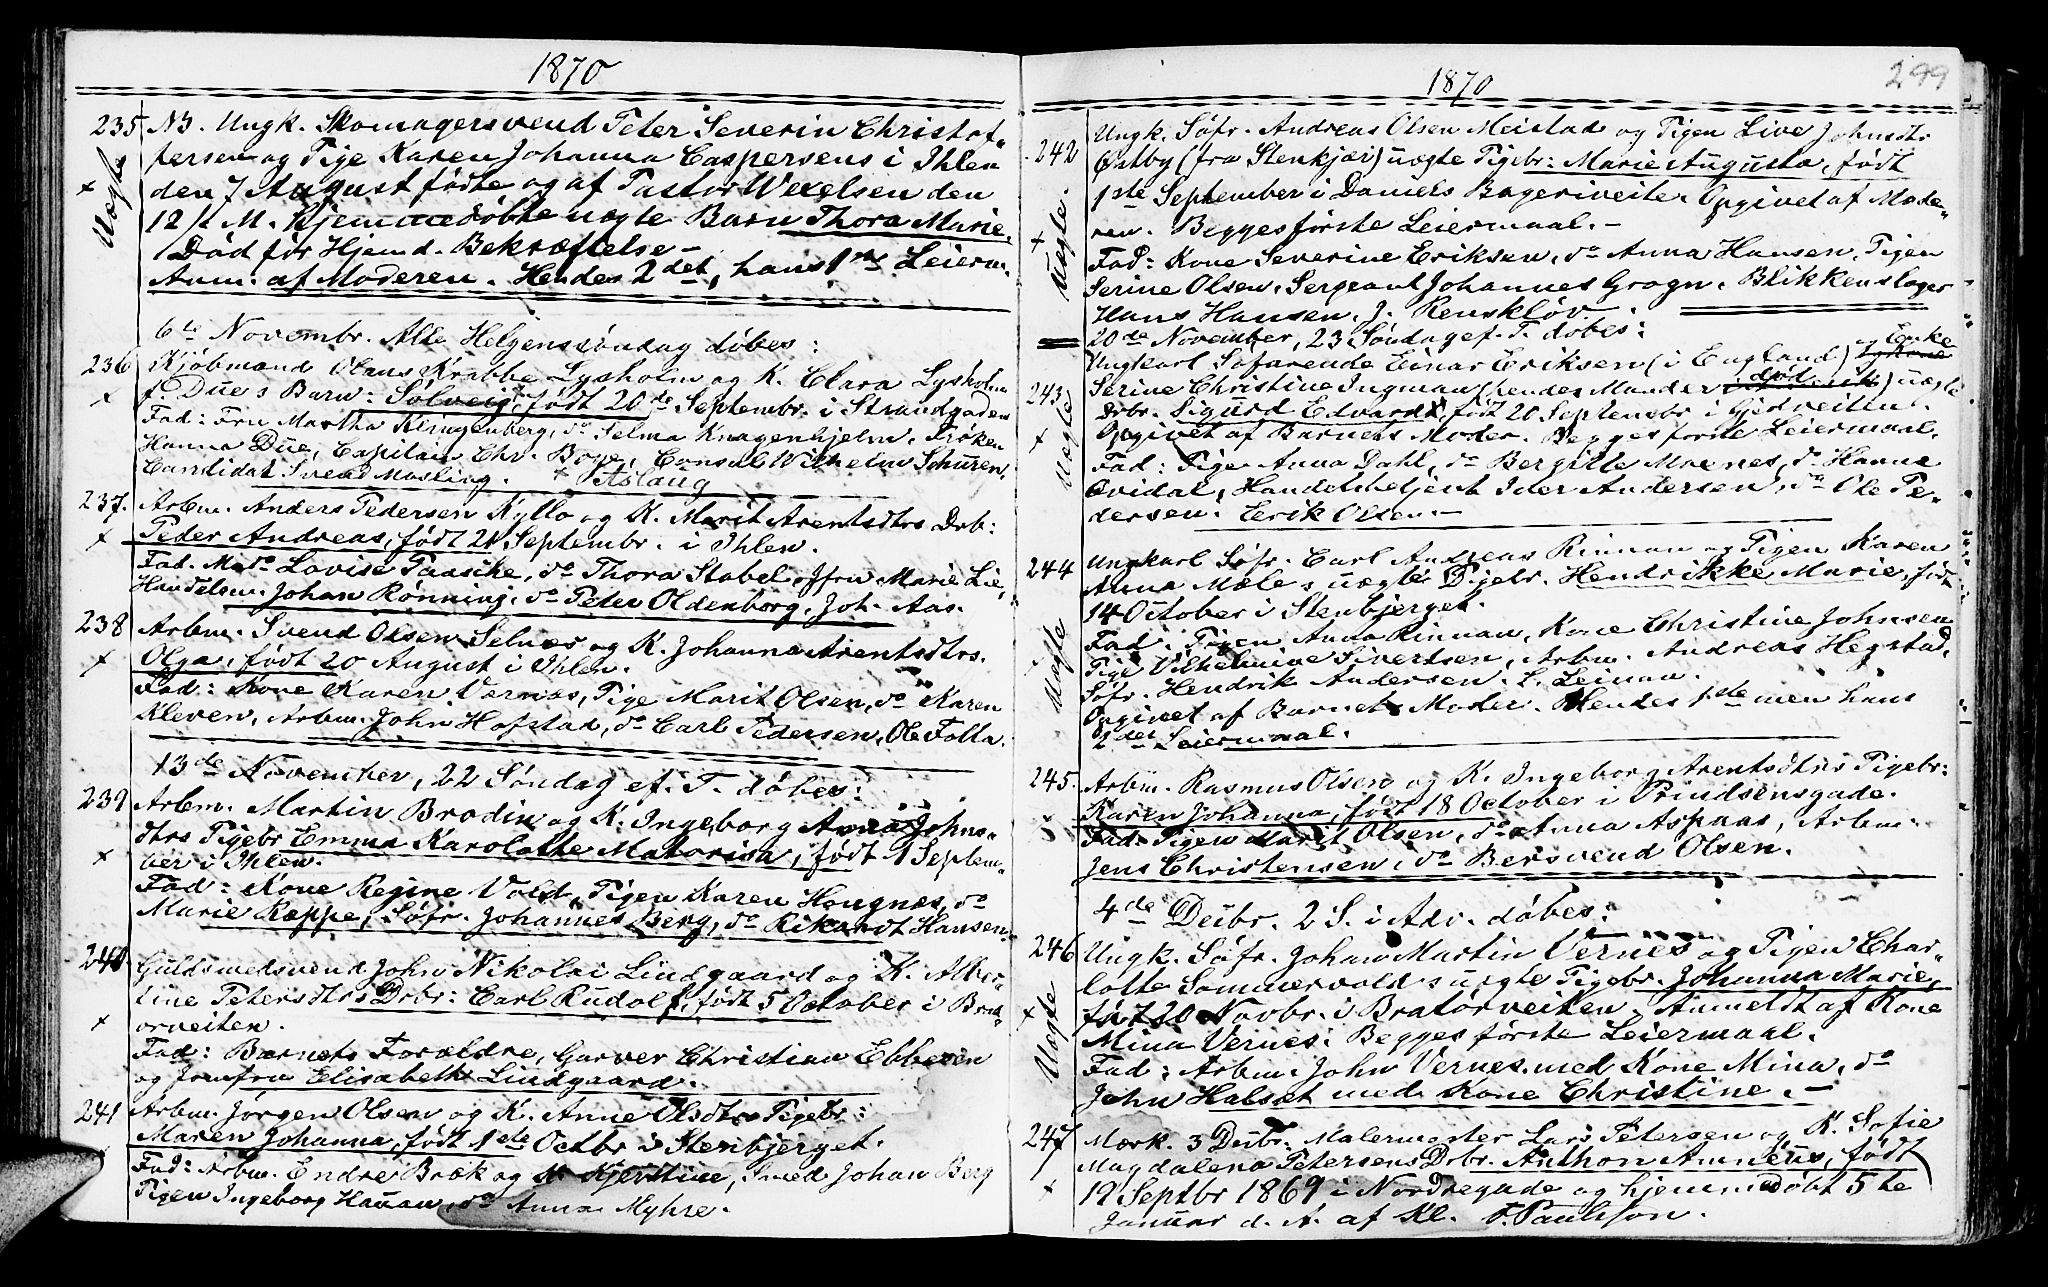 1870
235 NB. Ungk. Skomagersvend Peter Severin Christof-
fersen og Tige Karen Johanna Caspersens i Ihlen
den 7 August fødte og af Pastor Wexelsen den
12/1 M. hjemmedøbte uægte Barn Thora Marie.
Uægte
Død før Hjemd. Bekræftelse –
Anm. af Moderen. Hendes 2det, hans 1ste Leierm.
6te Novembr. Alle Helgenssøndag døbes:
236 Kjøbmand Olaus Krabbe Lysholm og K. Clara Lysholm
f. Dues Barn: Solveig, født 20de Septembr. i Strandgaden
Fad: Fru Martha Klingenberg, do Selma Knagenhjelm, Frøken
Hanna Due, Capitain Chr. Boye, Consul Wilhelm Schuren,
Candidat Svend Mosling. + Aslaug
237. Arbm. Anders Pedersen Kyllo og K. Marit Arentsdtrs Drb:
Peder Andreas, født 21 Septembr. i Ihlen.
Fad. Mad. Lovise Paasche, do Thora Stabel, Jfru Marie Lie,
Handelsm. Johan Rønning, do Peter Oldenborg, Joh. Aas.
238 Arbm. Svend Olsen Selnæs og K. Johanna Arentsdtrs.
Olga, født 20 August i Ihlen.
Fad: Kone Karen Værnæs, Tige Marit Olsen, do Karen
Kleven, Arbm. John Hofstad, do Carl Pedersen, Ole Folla.
13de November, 22 Søndag ef. T. døbes:
239 Arbm. Martin Brodin og K. Ingeborg Anna Johns-
dtrs Pigebr Emma Karolotte Matorisa, født 1 Septem-
ber i Ihlen.
Fad: Kone Regine Vold, Tigen Karen Haugnæs, do
Marie Rappe, Søfr. Johannes Berg, do Rikardt Hansen.
240. Guldsmedsvend John Nikolai Lindgaard og K. Alber-
tine Petersdtrs Drbr: Carl Rudolf, født 5 October i Brat-
ørveiten.
Fad: Barnets Forældre, Garver Christian Ebbesen
og Jomfru Elisabeth Lindgaard.
241 Arbm. Jørgen Olsen og K. Anne Olsdtrs Pigebr:
Maren Johanna, født 1de Octbr i Stenbjerget.
Fad: Arbm. Endre Bræk og K Kjerstine, Smed Johan Berg
Tigen Ingeborg Hauan, do Anna Myhre.
1870
299
242 Ungk. Søfr. Andreas Olsen Meistad og Tigen Live Johnsdtr
Østby (fra Stenkjær) uægte Pigebr: Marie Augusta, født
1ste September i Daniels Bageriveite. Opgivet af Mode-
ren. Begges første Leiermaal. –
Uægte.
Fad: Kone Severine Eriksen, do Anna Hansen, Tigen
Serine Olsen, Sergeant Johannes Grogn, Blikkenslager
Hans Hansen, J. Renskløv.
20de November, 23 Søndag ef. T. døbes:
243 Ungkarl Søfarende Einar Eriksen (i England) og Enke
Serine Christine Ingman (hendes Mand er død) uægte
Drbr. Sigurd Edvardt, født 20 Septembr i Gjedveiten.
Opgivet af Barnets Moder. Begges første Leiermaal.
Uægte
Fad: Tige Anna Dahl, do Bergitte Moenes, do Hanna
Qvidal, Handelsbetjent Iver Andersen, do Ole Pe-
dersen. Erik Olsen. –
244 Ungkarl Søfr. Carl Andreas Rinnan og Tigen Karen
Anna Mæles uægte Pigebr. Hendrikke Marie, født
14 October i Stenbjerget.
Fad: Tigen Anna Rinnan, Kone Christine Johnsen
Tige Vilhelmine Sivertsen, Arbm. Andreas Hegstad,
Søfr. Hendrik Andersen. L. Leinan.
Uægte
Opgivet af Barnets Moder. Hendes 1ste men hans
2det Leiermaal.
245. Arbm. Rasmus Olsen og K. Ingeborg Arentsdtrs Pigebr:
Karen Johanna, født 18 October i Prindsensgade.
Fad: Tigen Marit Olsen, do Anna Aspaas, Arbm.
Jens Christensen, do Bersvend Olsen.
4de Decbr. 2 S. i Adv. døbes:
246 Ungk. Søfr. Johan Martin Vernes og Tigen Char-
lotte Sommervolds uægte Pigebr. Johanna Marie,
født 20 Novbr. i Bratørveiten. Anmeldt af Kone
Mina Vernes. Begges første Leiermaal.
Uægte
Fad: Arbm. John Vernes med Kone Mina, do
John Halset med Kone Christine. –
247 Mærk. 3 Decbr. Malermester Lars Petersen og K. Sofie
Magdalena Petersens Drbr. Anthon Amneus, født
19 Septbr 1869 i Nordregade og hjemmedøbt 5te
Januar d. A. af Kl. F. Paulsson.